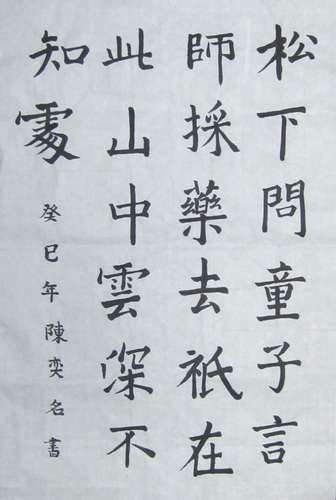 松下問童子言
師採藥去祇在
此山中雲深不
知處
癸巳年陳奕名書